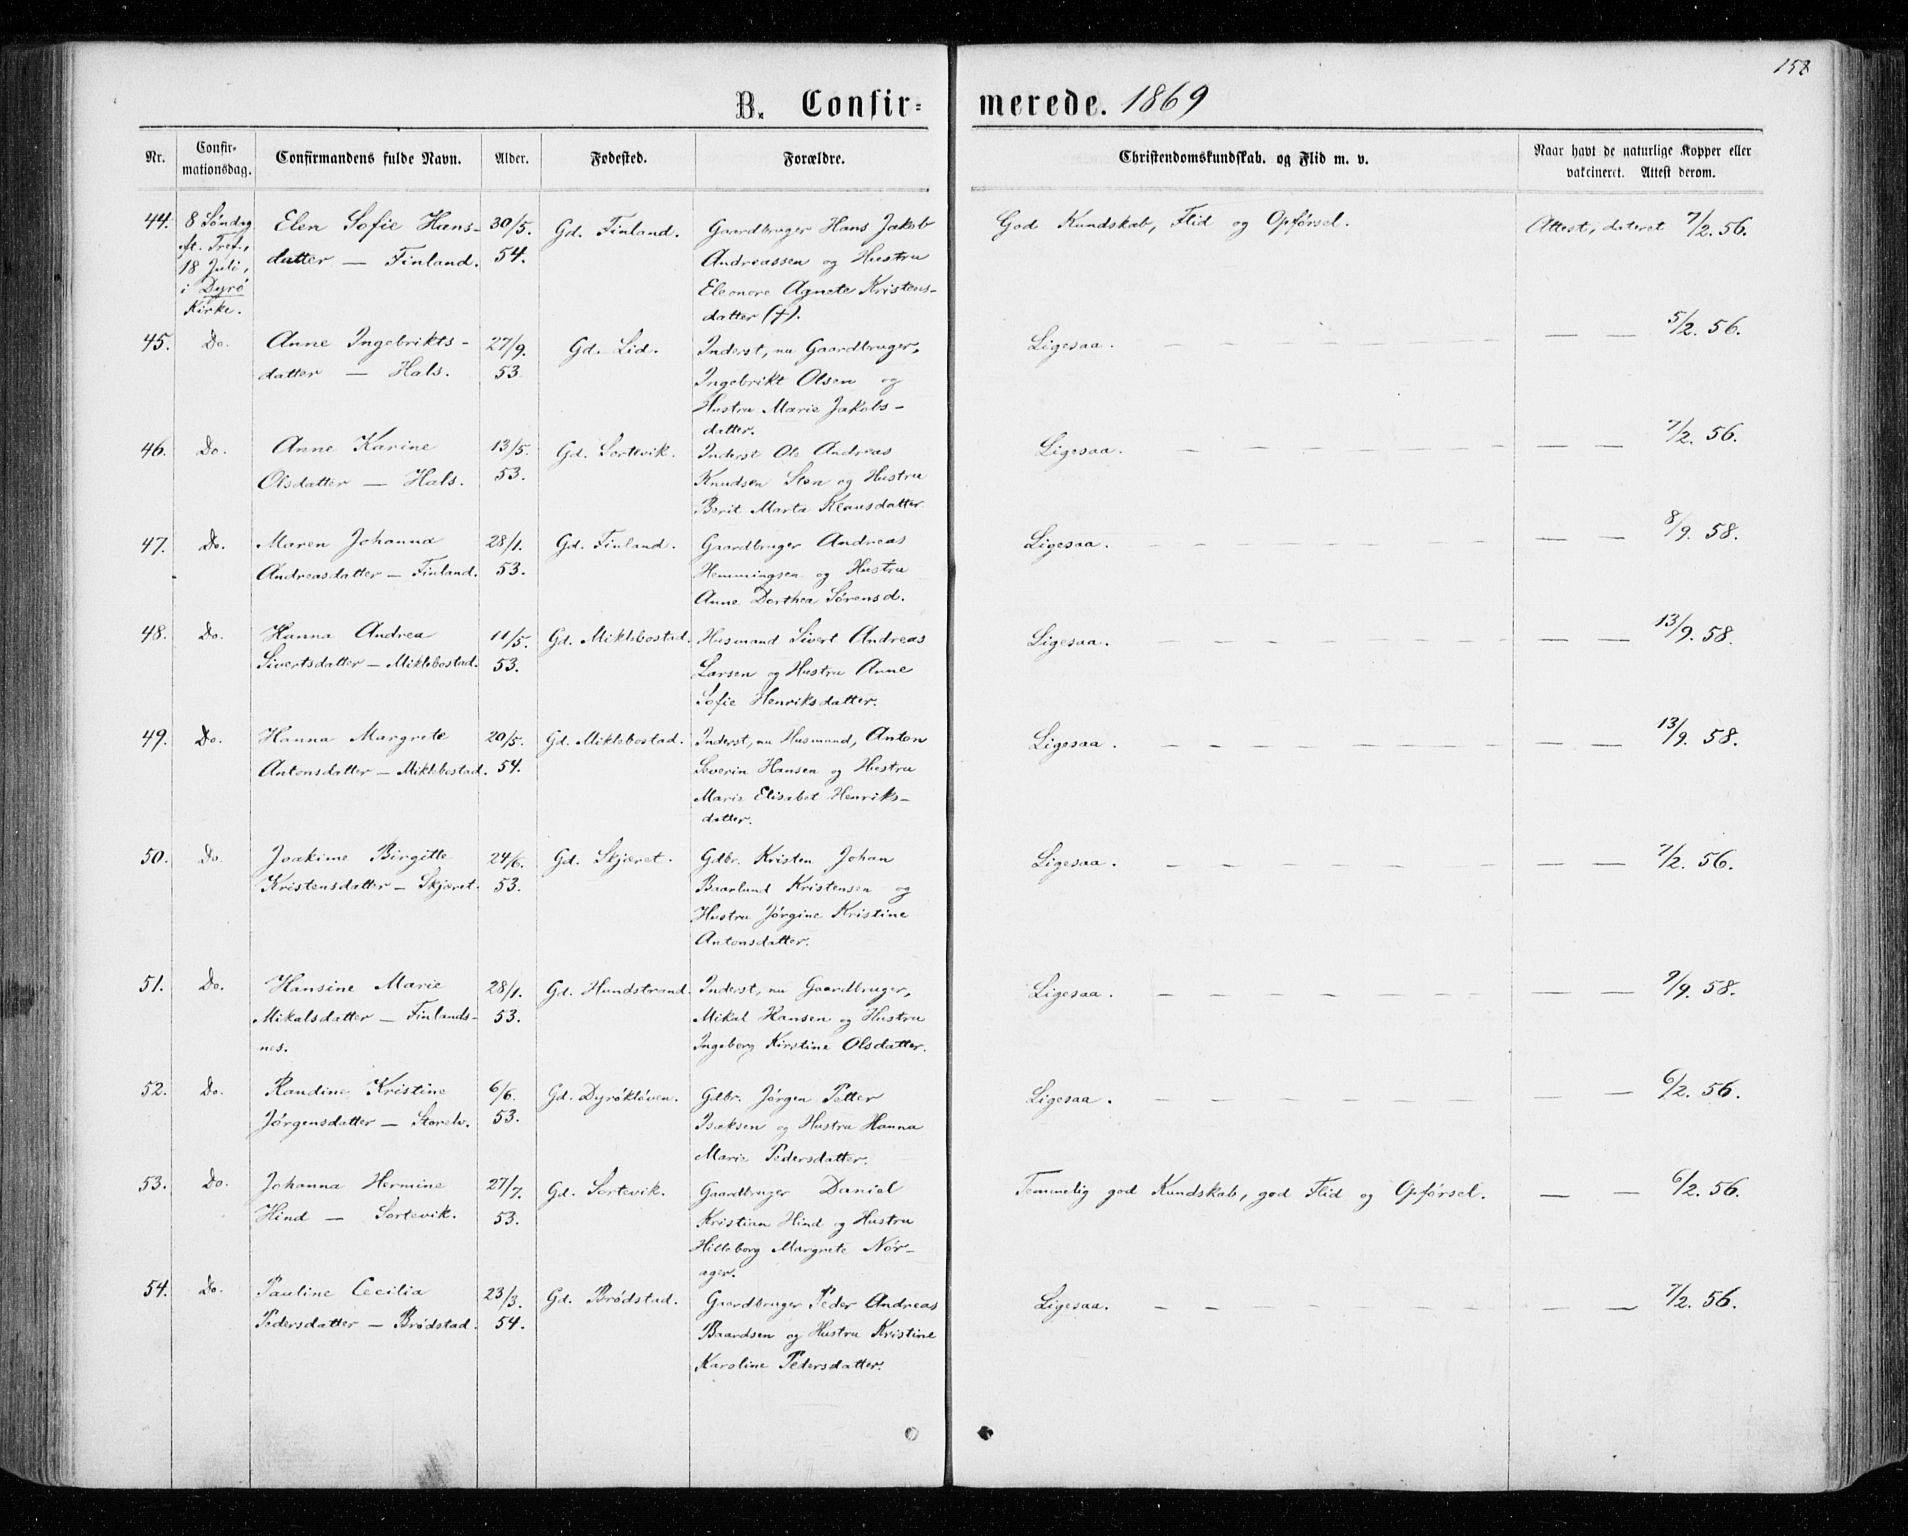 158
B. Confirmerede. 1869
Nr. Confirmationsdag. Confirmandens fulde Navn. Alder. Fødested. Forældre. Christendomskundskab. og Flid m. v. Naar havt de naturlige Kopper eller vakcineret. Attest derom.
44. 8 Søndag Elen Sofie Hans- 30/5. Gd. Finland. Gaardbruger Hans Jakob God Kundskab, Flid og Opførsel. Attest, dateret 7/2. 56.
eft. Tref., datter — Finland. 54. Andreassen og Hustru
18 Juli, Eleonore Agnete Kristens-
i Dyrø datter (†).
Kirke.
45. Do. Anne Ingebrikts- 27/9. Gd. Lid. Inderst, nu Gaardbruger, Ligesaa. — — 5/2. 56.
datter — Hals. 53. Ingebrikt Olsen og
Hustru Marie Jakobs-
datter.
46. Do. Anne Karine 13/5. Gd. Sortevik. Inderst Ole Andreas Ligesaa. — — 7/2. 56.
Olsdatter — Hals. 53. Knudsen Sten og Hustru
Berit Marta Klausdatter
47. Do. Maren Johanna 28/1. Gd. Finland. Gaardbruger Andreas Ligesaa. — — 8/9. 58.
Andreasdatter — Finland. 53. Hemmingsen og Hustru
Anne Dorthea Sørensd.
48. Do. Hanna Andrea 11/5. Gd. Miklebostad. Husmand Sivert Andreas Ligesaa. — — 13/9. 58.
Sivertsdatter — Miklebostad. 53. Larsen og Hustru Anne
Sofie Henriksdatter.
49. Do. Hanna Margrete 20/5. Gd. Miklebostad. Inderst, nu Husmand, Anton Ligesaa. — — 13/9. 58.
Antonsdatter — Miklebostad. 54. Severin Hansen og Hustru
Marie Elisabet Henriks-
datter.
50. Do. Joakime Birgitte 24/6. Gd. Skjæret. Gdbr. Kristen Johan Ligesaa. — — 7/2. 56.
Kristensdatter — Skjæret. 53. Baarlund Kristensen og
Hustru Jørgine Kristine
Antonsdatter.
51. Do. Hansine Marie 28/1. Gd. Hundstrand. Inderst, nu Gaardbruger, Ligesaa. — — 9/9. 58.
Mikalsdatter — Finlands- 53. Mikal Hansen og Hustru
nes. Ingeborg Kirstine Olsdatter.
52. Do. Randine Kristine 6/6. Gd. Dyrøkløven. Gdbr. Jørgen Petter Ligesaa. — — 6/2. 56.
Jørgensdatter — Storelv. 53. Isaksen og Hustru Hanna
Marie Pedersdatter.
53. Do. Johanna Hermine 27/7. Gd. Sortevik. Gaardbruger Daniel Temmelig god Kundskab, god Flid og Opførsel. — — 6/2. 56.
Hind — Sortevik. 53. Kristian Hind og Hustru
Hilleborg Margrete Nør-
ager.
54. Do. Pauline Cecilia 23/3. Gd. Brødstad. Gaardbruger Peder Andreas Ligesaa. — — 7/2. 56.
Pedersdatter — Brødstad. 54. Baardsen og Hustru Kristine
Karoline Pedersdatter.